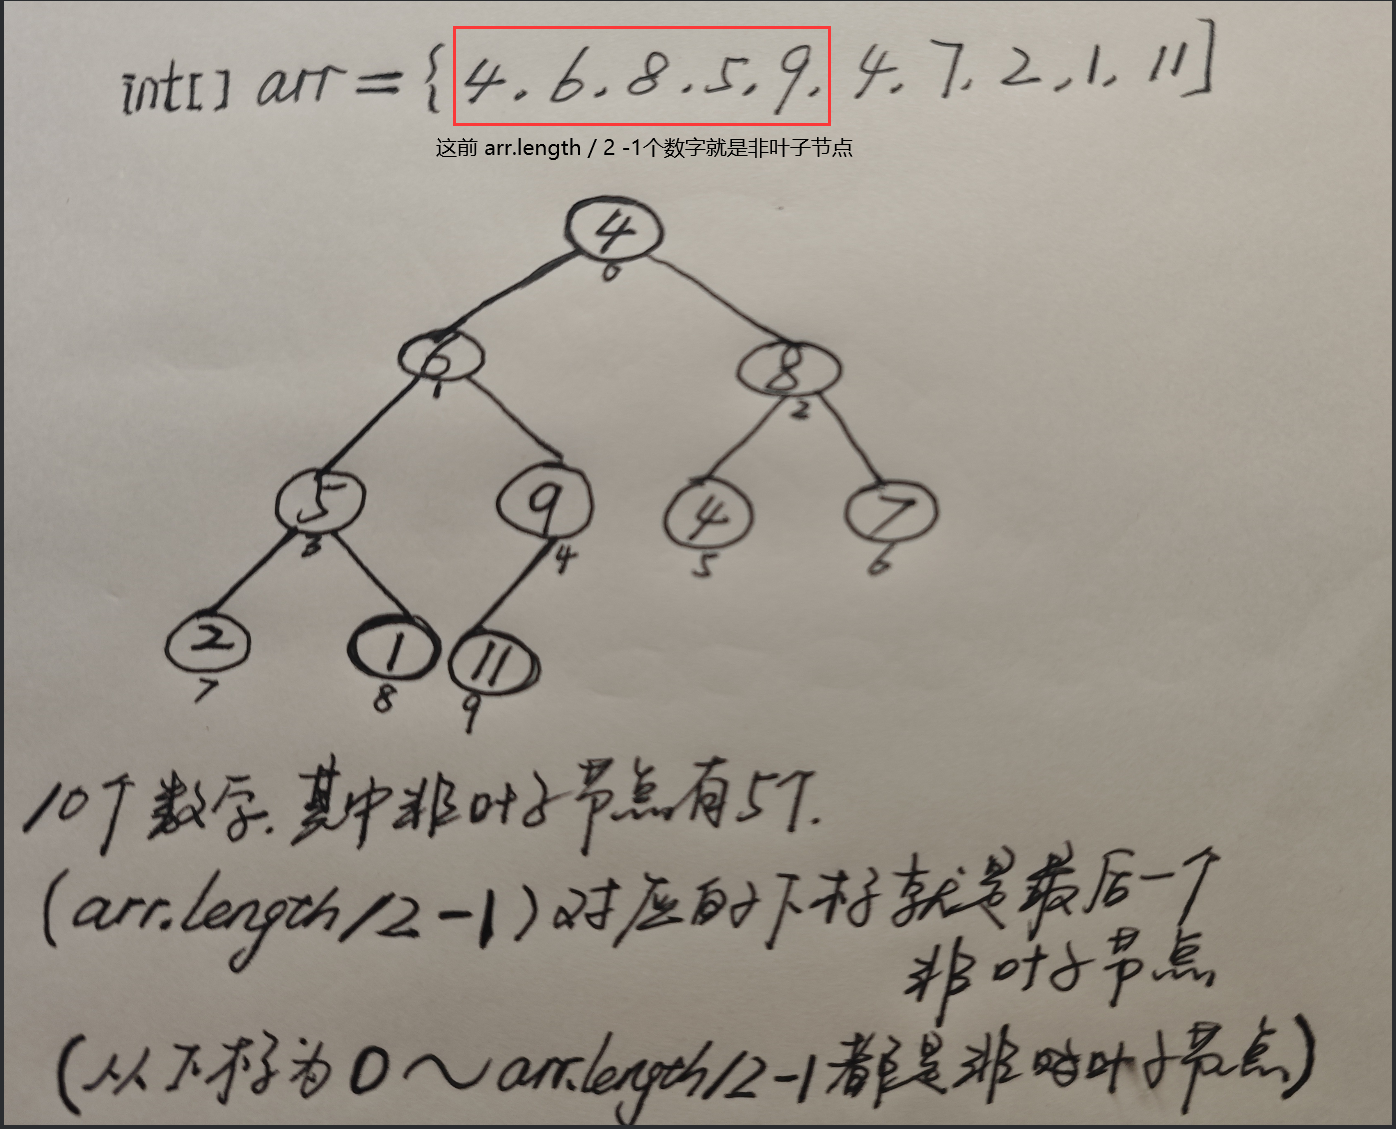 int[] arr = {4, 6, 8, 5, 9, 4, 7, 2, 1, 11]
这前 arr.length / 2 -1个数字就是非叶子节点
4
0
6
8
1
2
5
9
4
7
3
4
5
6
2
1
11
7
8
9
10个数字. 其中非叶子节点有5个.
(arr.length/2-1)对应的下标就是最后一个
非叶子节点
(从下标为0~arr.length/2-1都是非叶子节点)